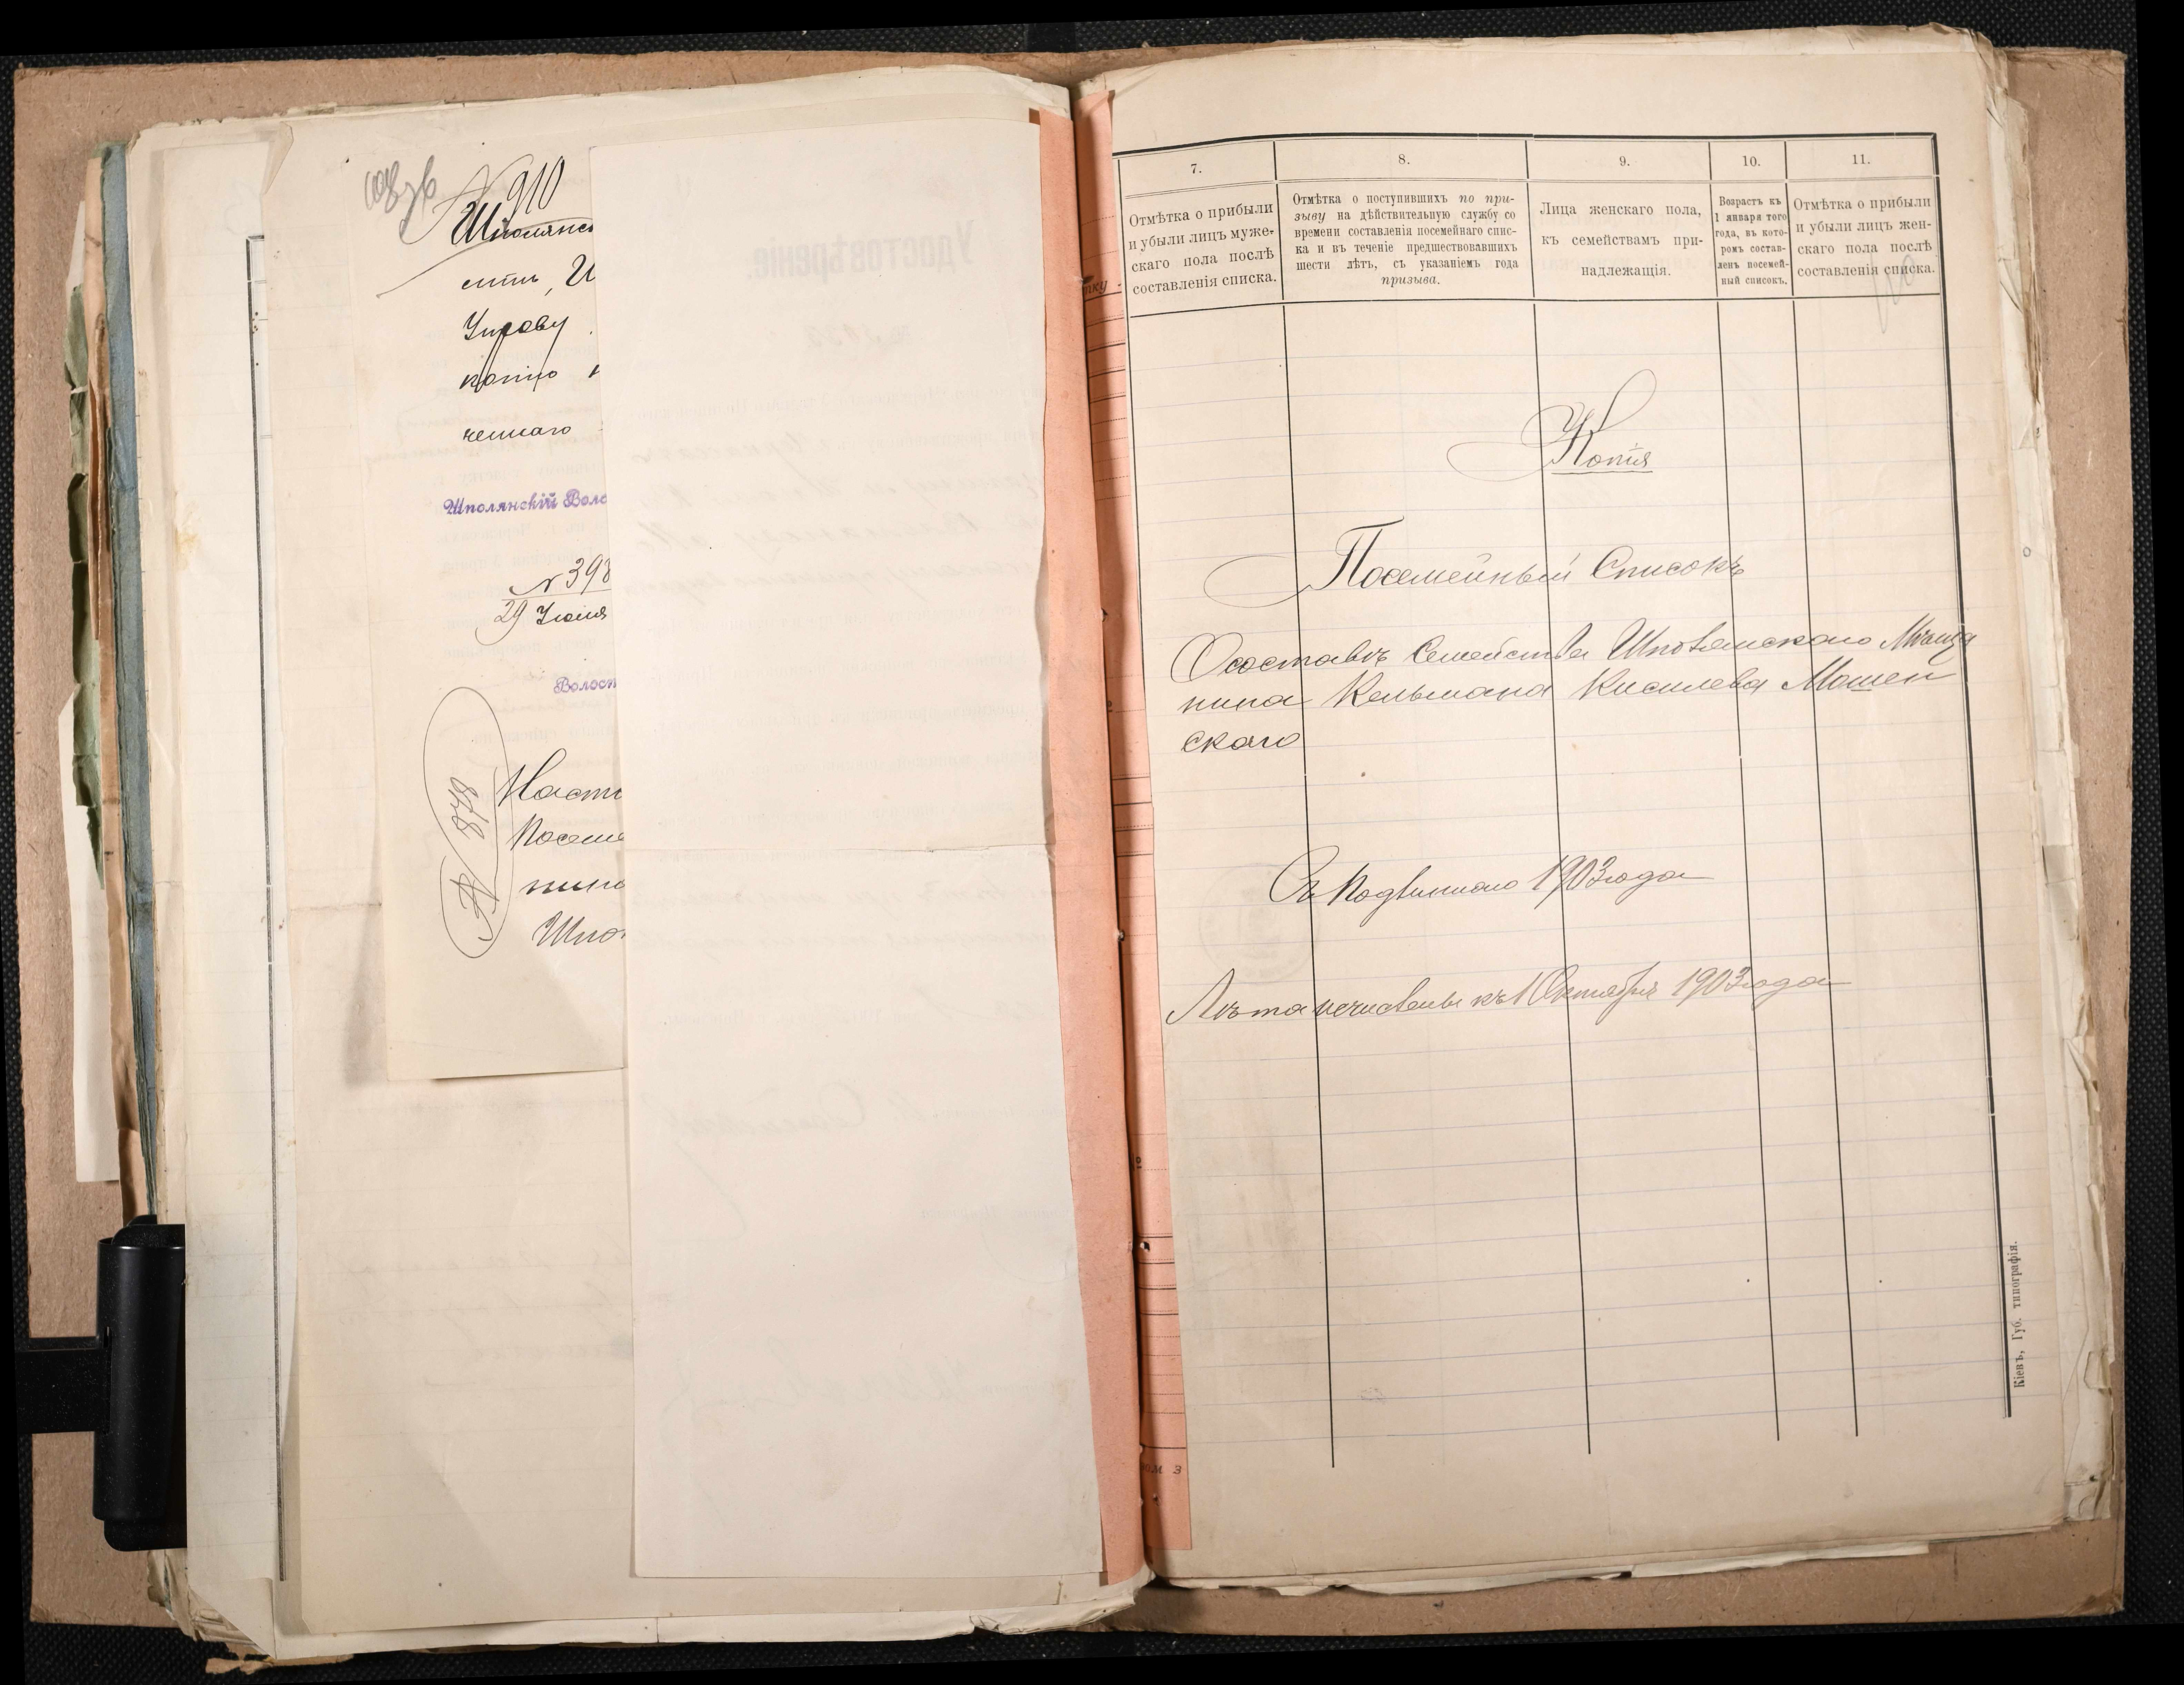 № 910
Шполянс
сить, И
Управу
копію
ченнаго
Шполянскій Воло
№ 398
29 Іюля
Волост
№ 878
Насто
Посеме
нина
Шпо
7.
8.
9.
10.
11.
Отмѣтка о прибыли
и убыли лицъ муже-
скаго пола послѣ
составленія списка.
Отмѣтка о поступившихъ по при-
зыву на дѣйствительную службу со
времени составленія посемейнаго спис-
ка и въ теченіе предшествовавшихъ
шести лѣтъ, съ указаніемъ года
призыва.
Лица женскаго пола,
къ семействамъ при-
надлежащія.
Возрастъ къ
1 января того
года, въ кото-
ромъ состав-
ленъ посемей-
ный списокъ.
Отмѣтка о прибыли
и убыли лицъ жен-
скаго пола послѣ
составленія списка.
Копія
Посемейный Списокъ
О составѣ Семейства Шполянскаго Мѣща
нина Кельмана Кисилева Мошен
скаго
Лѣта исчислены къ 1 Октября 1903 года
Кіевъ, Губ. типографія.